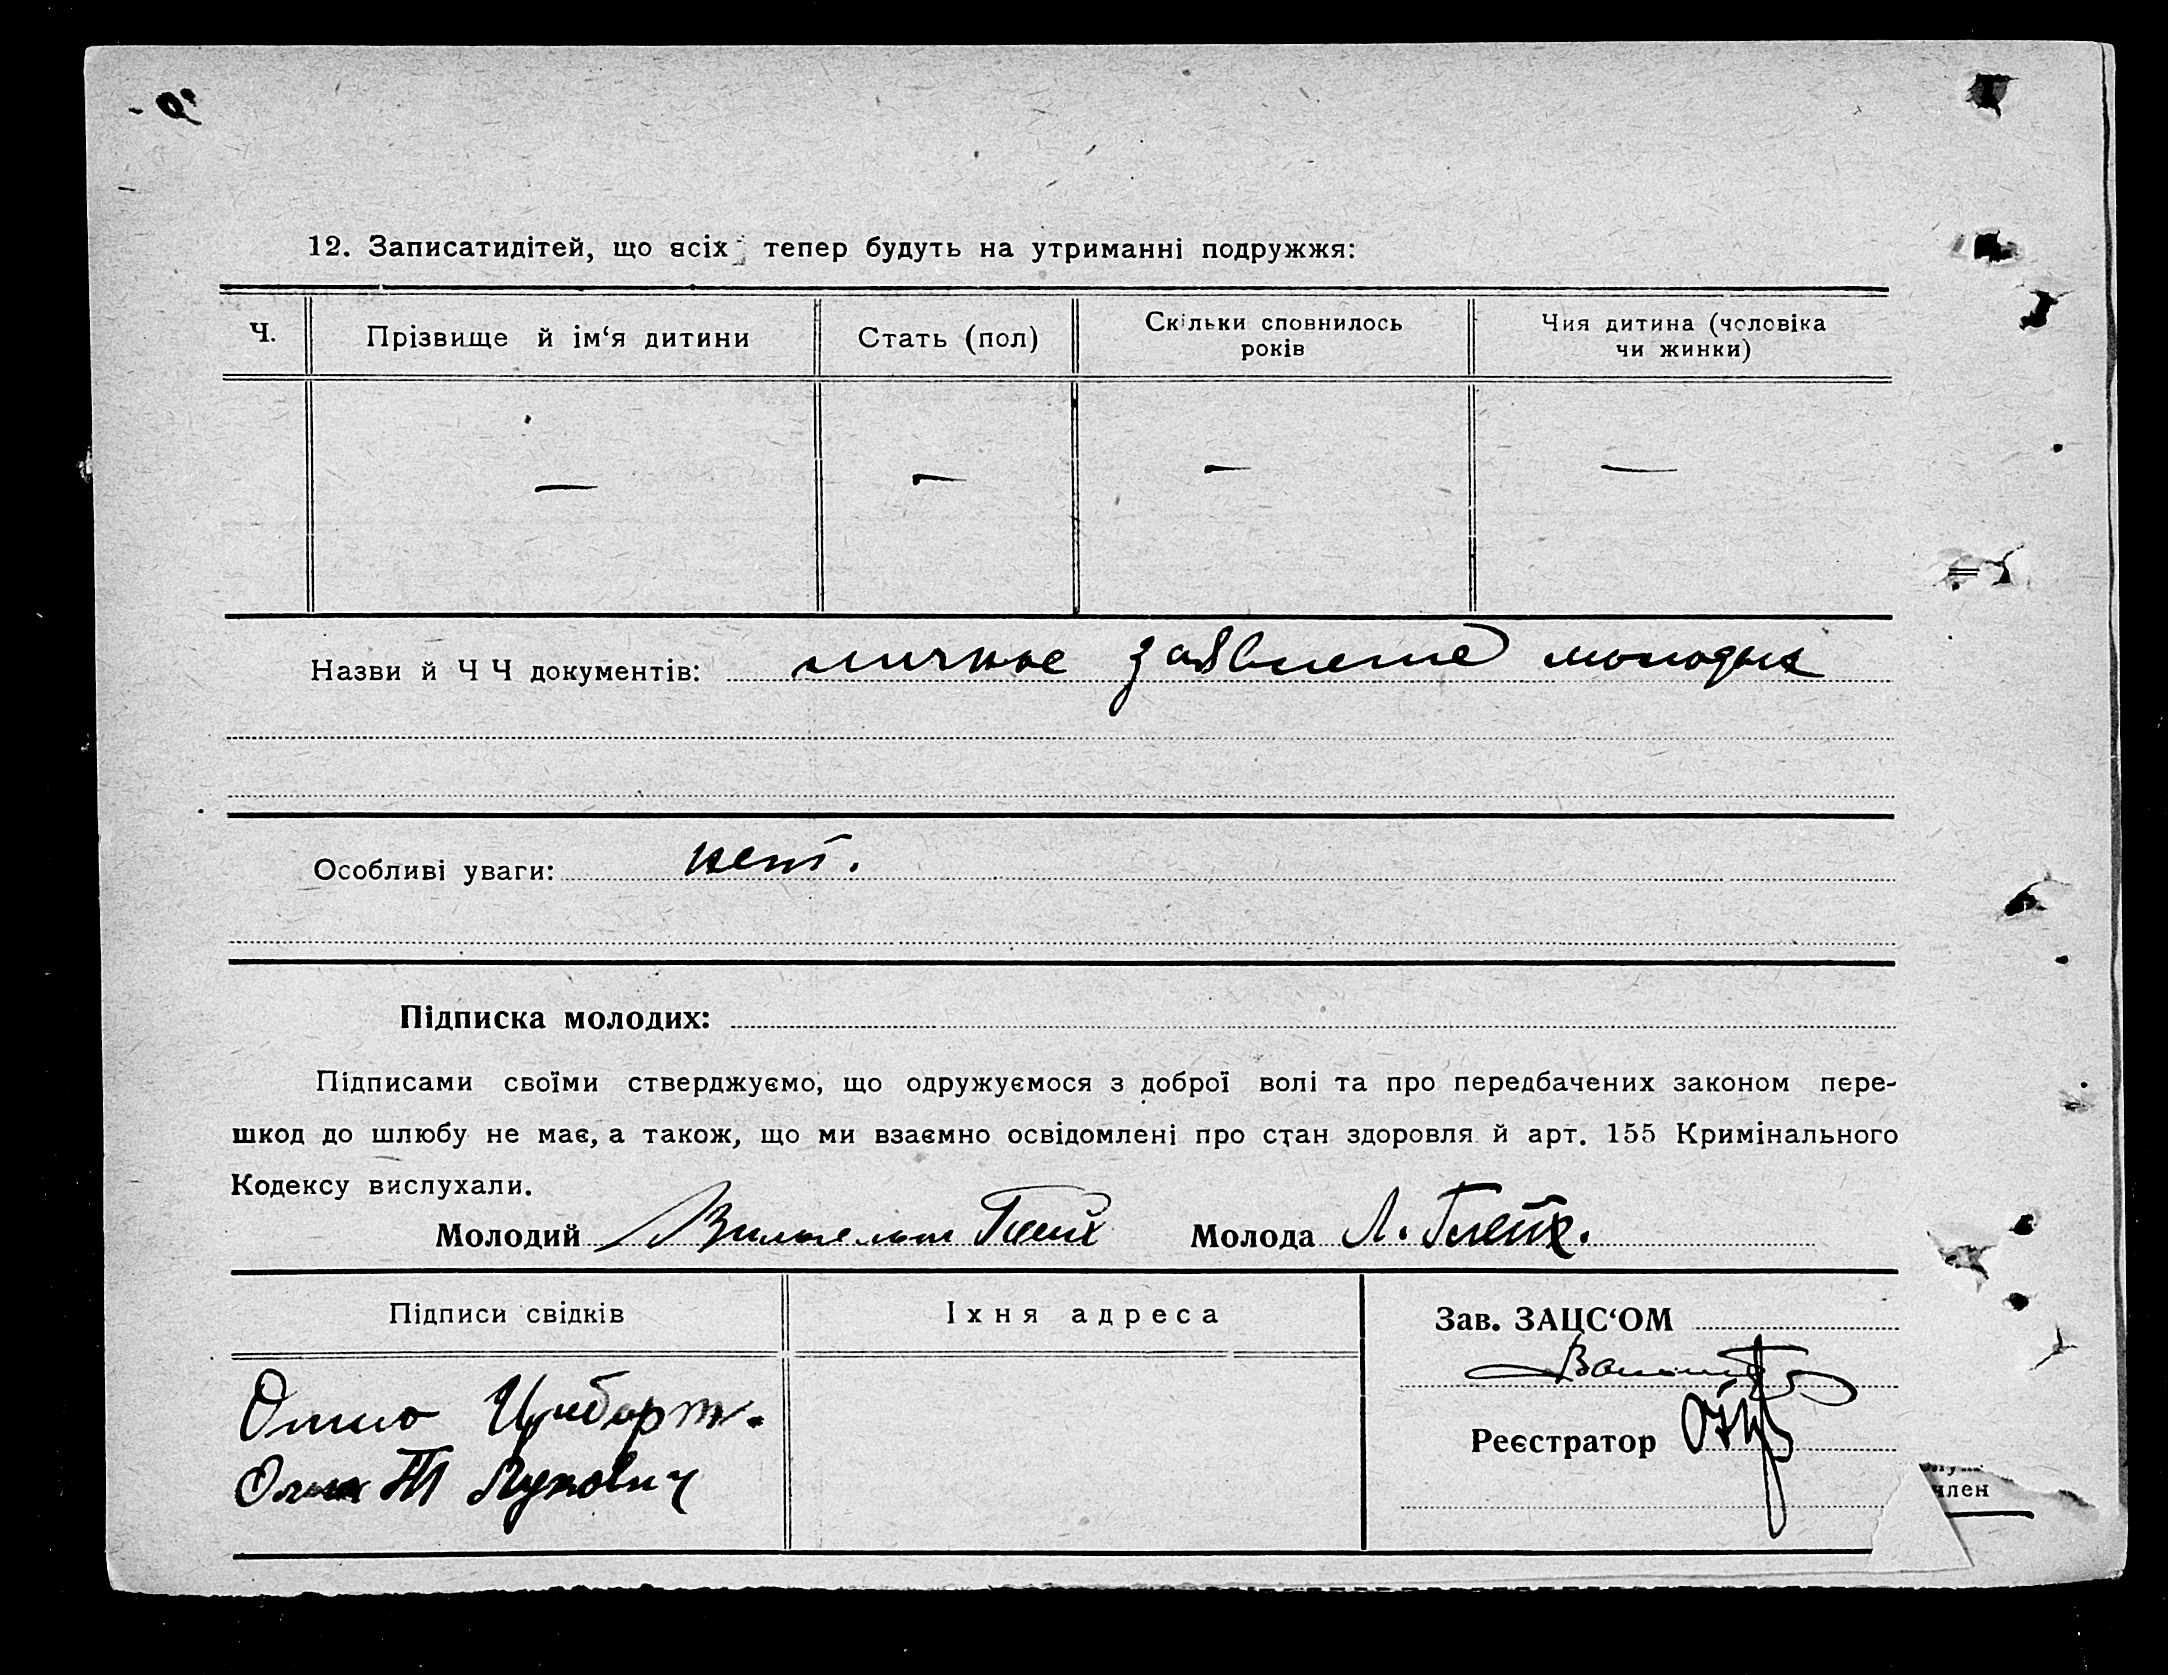 12. Записатидітей, що всіх тепер будуть на утриманні подружжя:
Ч.
Прізвище й ім‘я дитини
Стать (пол)
Скільки сповнилось
років
Чия дитина (чоловіка
чи жинки)
— — — —
Назви й Ч Ч документів: личные заявление молодых
Особливі уваги: нет.
Підписка молодих:
Підписами своїми стверджуємо, що одружуємося з доброї волі та про передбачених законом пере-
шкод до шлюбу не має, а також, що ми взаємно освідомлені про стан здоровля й арт. 155 Кримінального
Кодексу вислухали.
Молодий Вильгельм Глейх Молода Л. Глейх.
Підписи свідків
Іхня адреса
Зав. ЗАЦС‘ОМ
Реєстратор
член